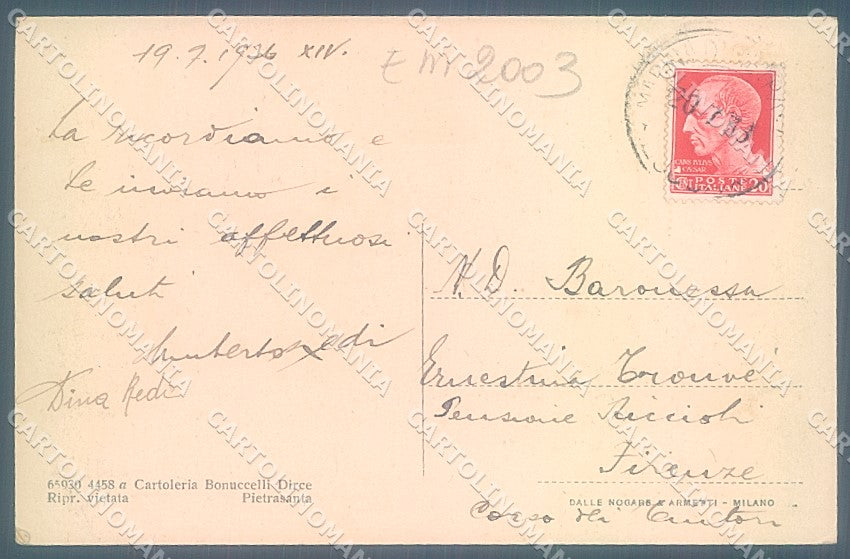 19.7.1936 XIV.
E m 2003
La ricordiamo e
Le inviamo i
nostri affettuosi
saluti
Umberto Redi
Dina Redi
65930 4458 a Cartoleria Bonuccelli Dirce
Ripr. vietata Pietrasanta
CAIUS IVLIVS
CAESAR
POSTE
ITALIANE 20
N. D. Baronessa
Ernestina Trouvé
Pensione Riccioli
Firenze
DALLE NOGARE & ARMETTI - MILANO
Corso dei Tintori
CARTOLINOMANIA